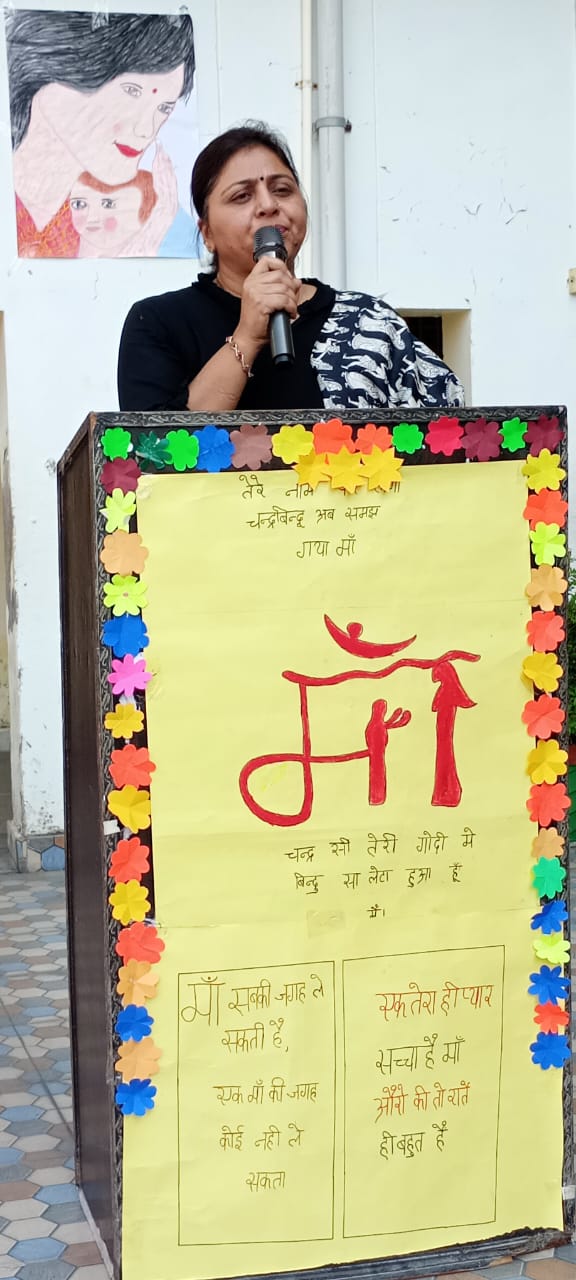 तेरे नाम
चन्द्रबिन्दू अब समझ
गया माँ
माँ
चन्द्र सी तेरी गोदी मे
बिन्दु सा लेटा हुआ हूँ
मैं।
माँ सबकी जगह ले
सकती है,
एक माँ की जगह
कोई नही ले
सकता
एक तेरा ही प्यार
सच्चा है माँ
औरो की तो शर्ते
ही बहुत है